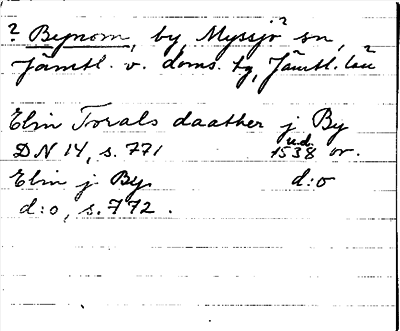 ? Bynom, by, Myssjö sn,
Jämtl. v. doms. tg, Jämtl. län
Elin Torals daather j By
DN 14, s. 771 u.d. 1538 or.
Elin j By. d:o
d:o, s. 772.